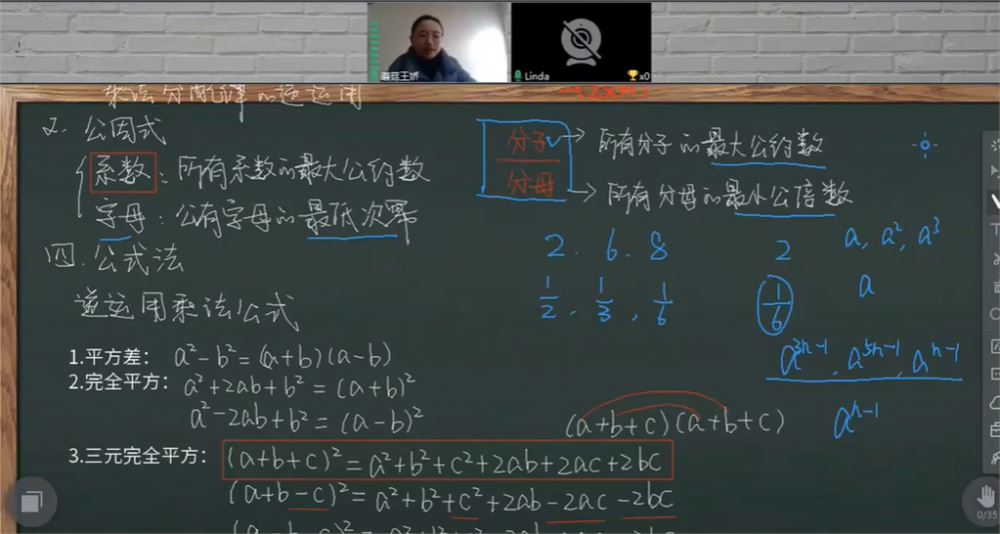 蘑菇王娇
Linda
x0
乘法分配律的逆运用
2. 公因式
系数：所有系数的最大公约数
字母：公有字母的最低次幂
分子 → 所有分子的最大公约数
分母 → 所有分母的最小公倍数
2. 6. 8
2
a, a², a³
1/2, 1/3, 1/6
1/6
a
a³ⁿ⁻¹, a⁵ⁿ⁻¹, aⁿ⁻¹
aⁿ⁻¹
四. 公式法
逆运用乘法公式
1.平方差： a²-b²=(a+b)(a-b)
2.完全平方： a²+2ab+b²=(a+b)²
a²-2ab+b²=(a-b)²
(a+b+c)(a+b+c)
3.三元完全平方： (a+b+c)²=a²+b²+c²+2ab+2ac+2bc
(a+b-c)²=a²+b²+c²+2ab-2ac-2bc
0/35